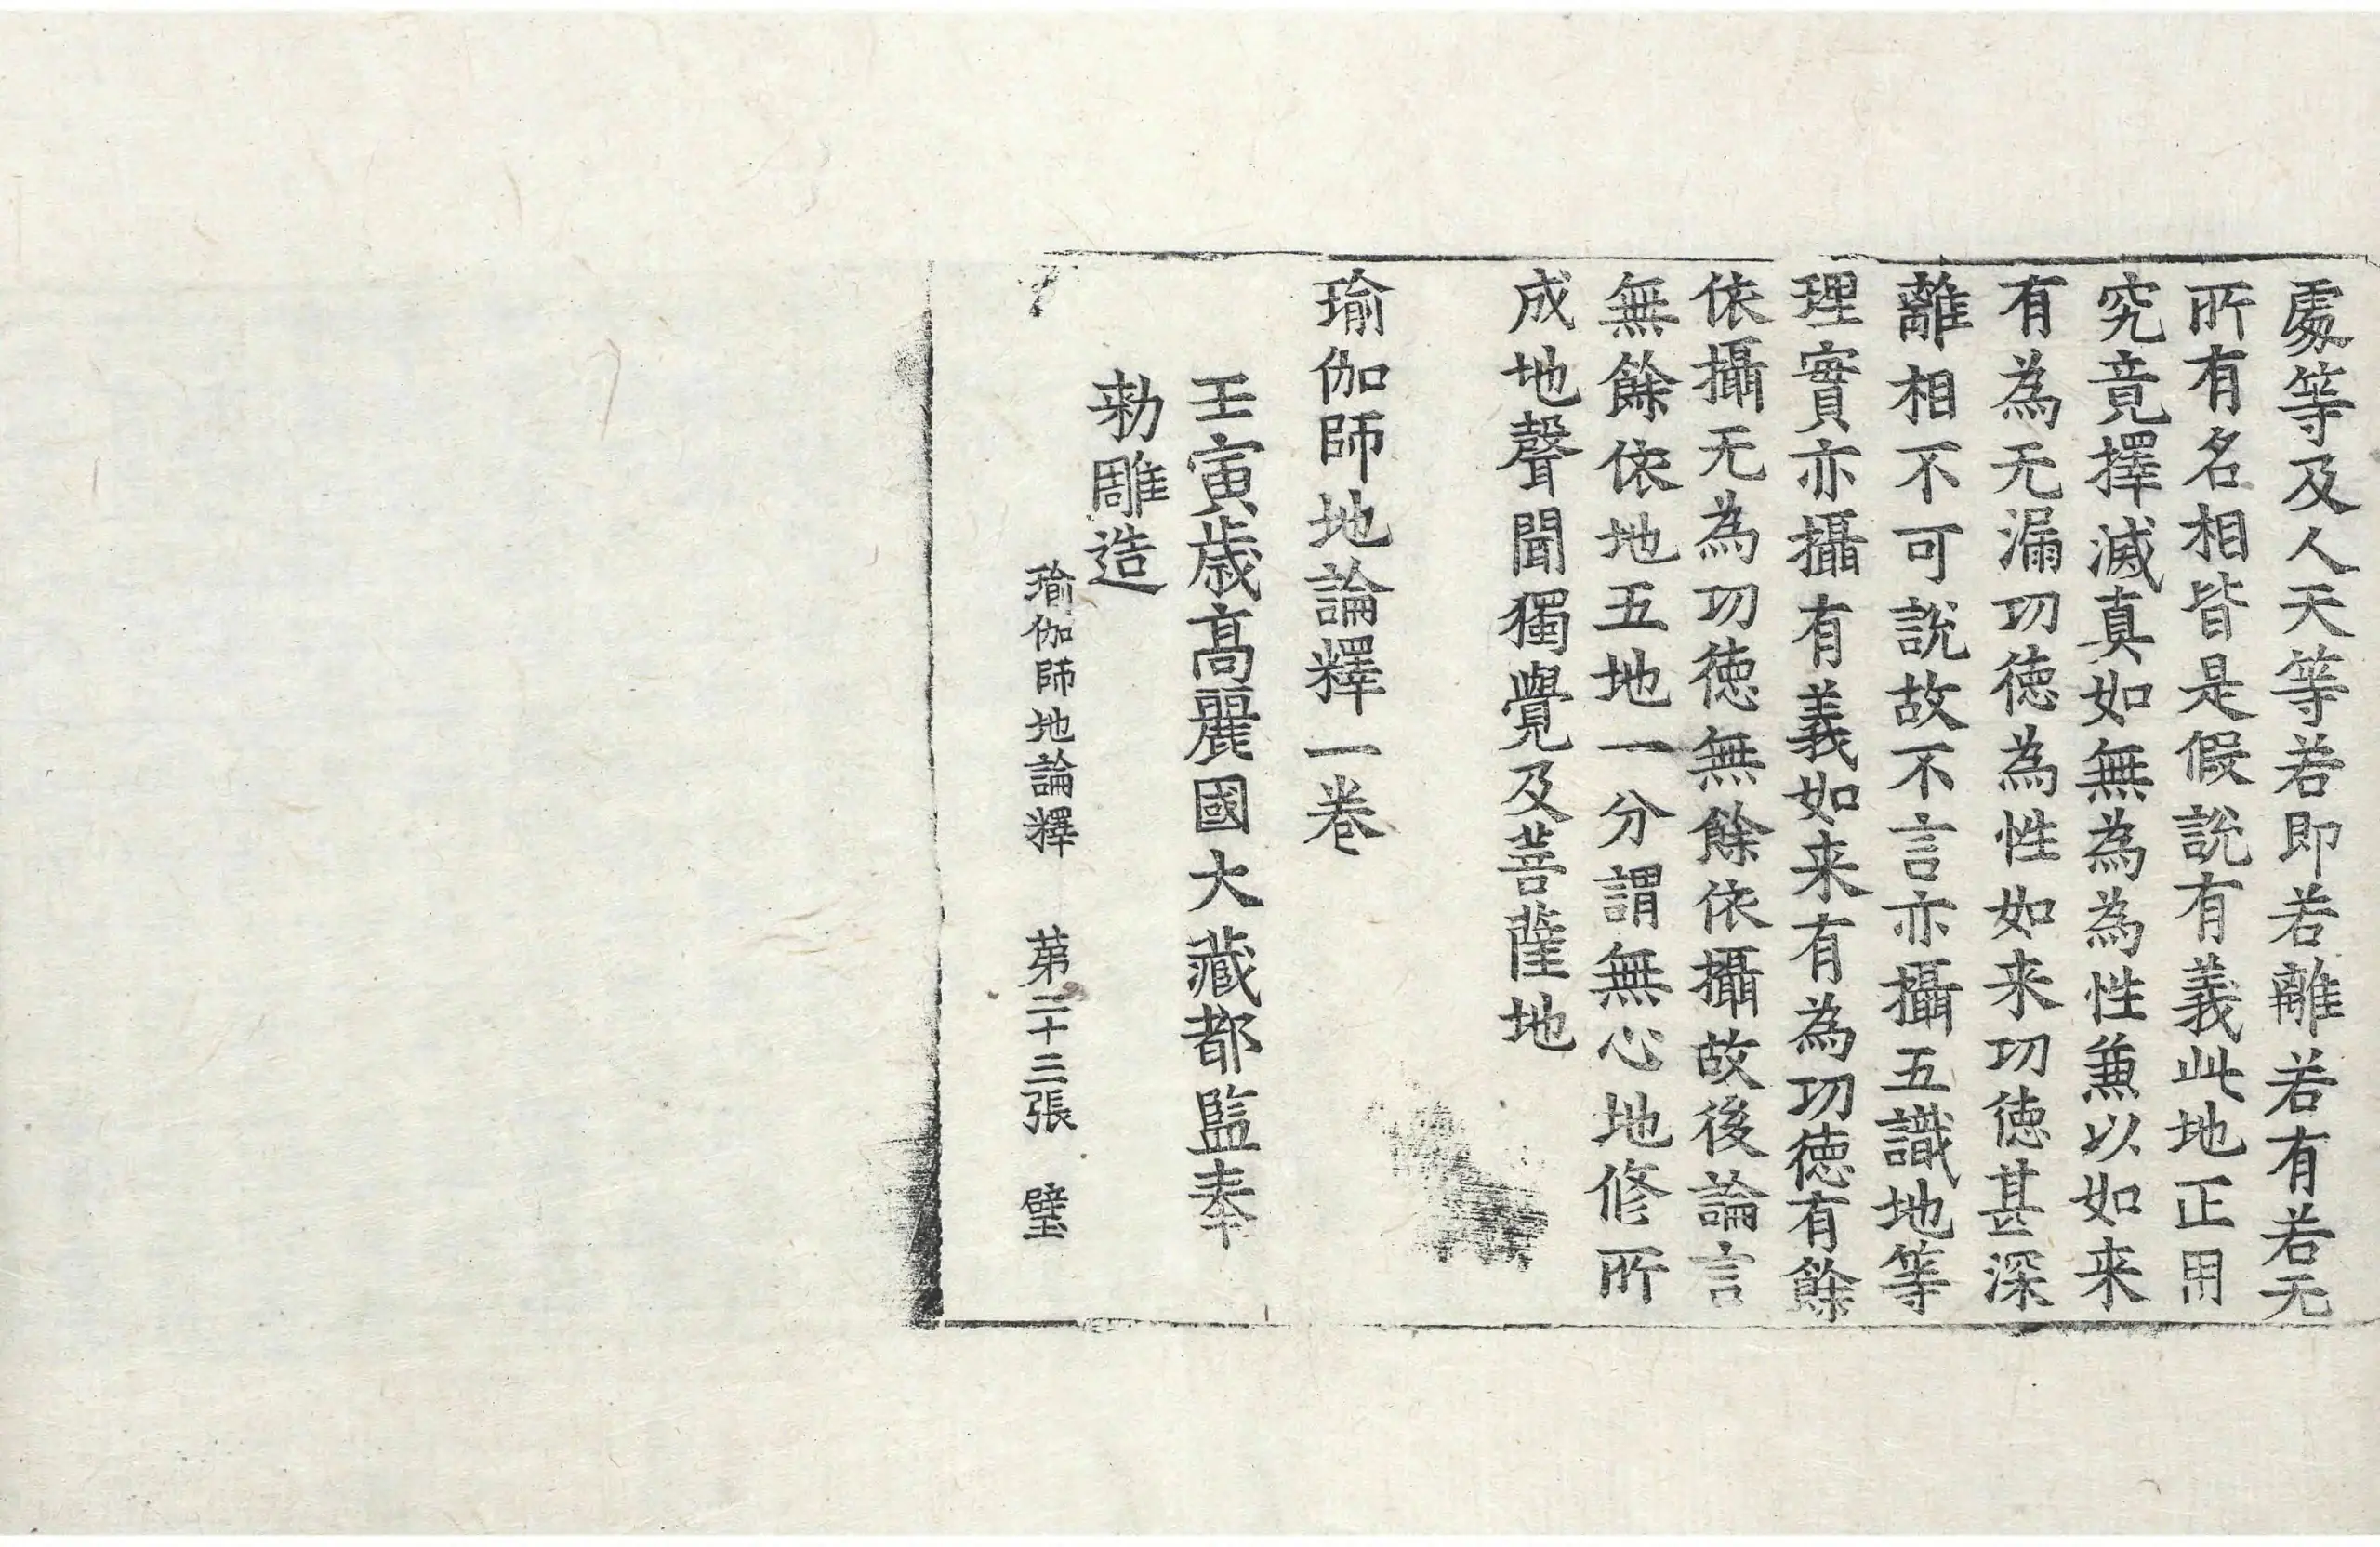 處等及人天等若即若離若有若无
所有名相皆是假說有義此地正用
究竟擇滅真如無為為性兼以如来
有為无漏功德為性如来功德甚深
離相不可說故不言亦攝五識地等
理實亦攝有義如来有為功德有餘
依攝无為功德無餘依攝故後論言
無餘依地五地一分謂無心地修所
成地聲聞獨覺及菩薩地
瑜伽師地論釋一卷
壬寅歳高麗國大藏都監奉
勑雕造
瑜伽師地論釋　第二十三張　璧